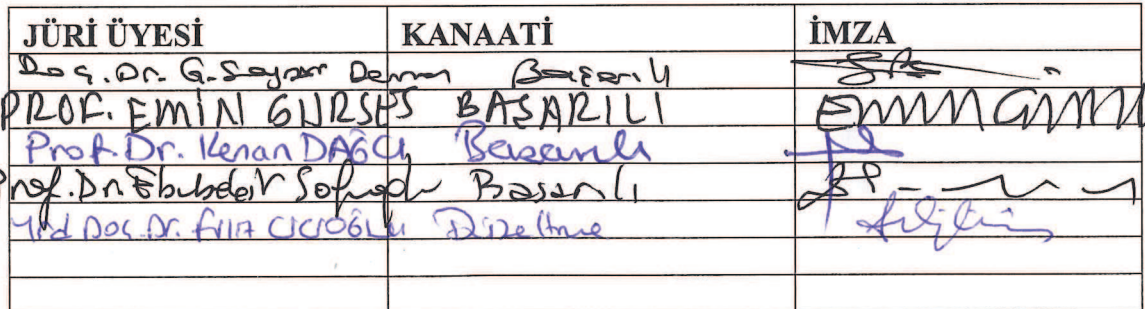 JÜRİ ÜYESİ KANAATİ İMZA
Doç. Dr. G. Saynur Derman Başarılı
PROF. EMİN GÜRSES BAŞARILI EMİN GÜRSES
Prof. Dr. Kenan DAĞCI Başarılı
Prof. Dr. Ebubekir Sofuoğlu Başarılı
Yrd Doç. Dr. Filiz CİCİOĞLU Düzeltme